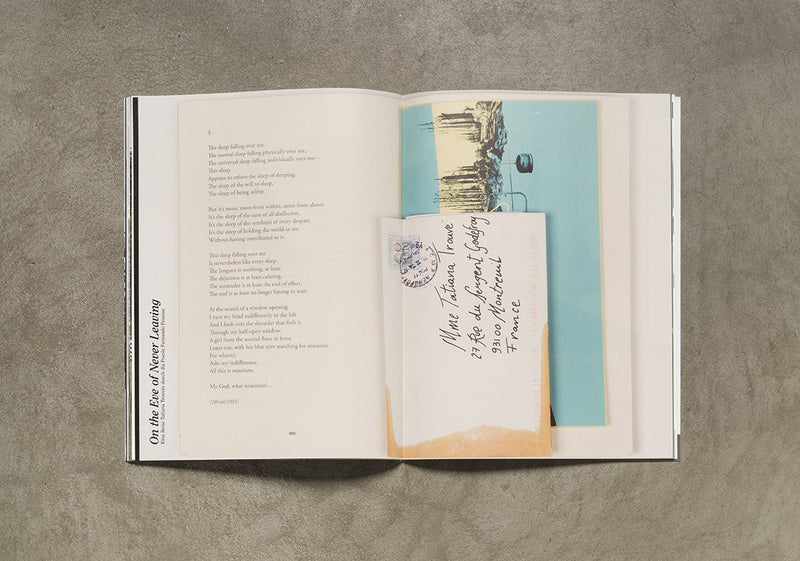 5
The sleep falling over me,
The mental sleep falling physically over me,
The universal sleep falling individually over me—
This sleep
Appears to others the sleep of sleeping,
The sleep of the will to sleep,
The sleep of being asleep.
But it's more, more from within, more from above;
It's the sleep of the sum of all disillusion,
It's the sleep of the synthesis of every despair,
It's the sleep of holding the world in me
Without having contributed to it.
This sleep falling over me
Is nevertheless like every sleep.
The languor is soothing, at least,
The dejection is at least calming,
The surrender is at least the end of effort,
The end is at least no longer having to wait.
At the sound of a window opening
I turn my head indifferently to the left
And I look over the shoulder that feels it
Through my half-open window.
A girl from the second floor in front
Leans out, with her blue eyes searching for someone.
For whom?,
Asks my indifference.
All this is weariness.
My God, what weariness!…
(28/viii/1935)
150
On the Eve of Never Leaving
Eine Reise Tatiana Trouvés durch die Poesie Fernando Pessoas
Mme Tatiana Trouvé
27 Rue du Sergent Godefroy
93100 Montreuil
France